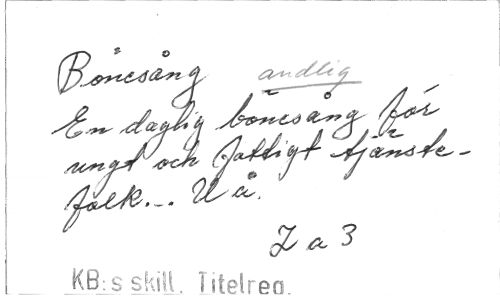 Bönesång andlig
En daglig bönesång för
ungt och fattigt tjänste-
folk... U å.
Z a 3
KB:s skill. Titelreg.